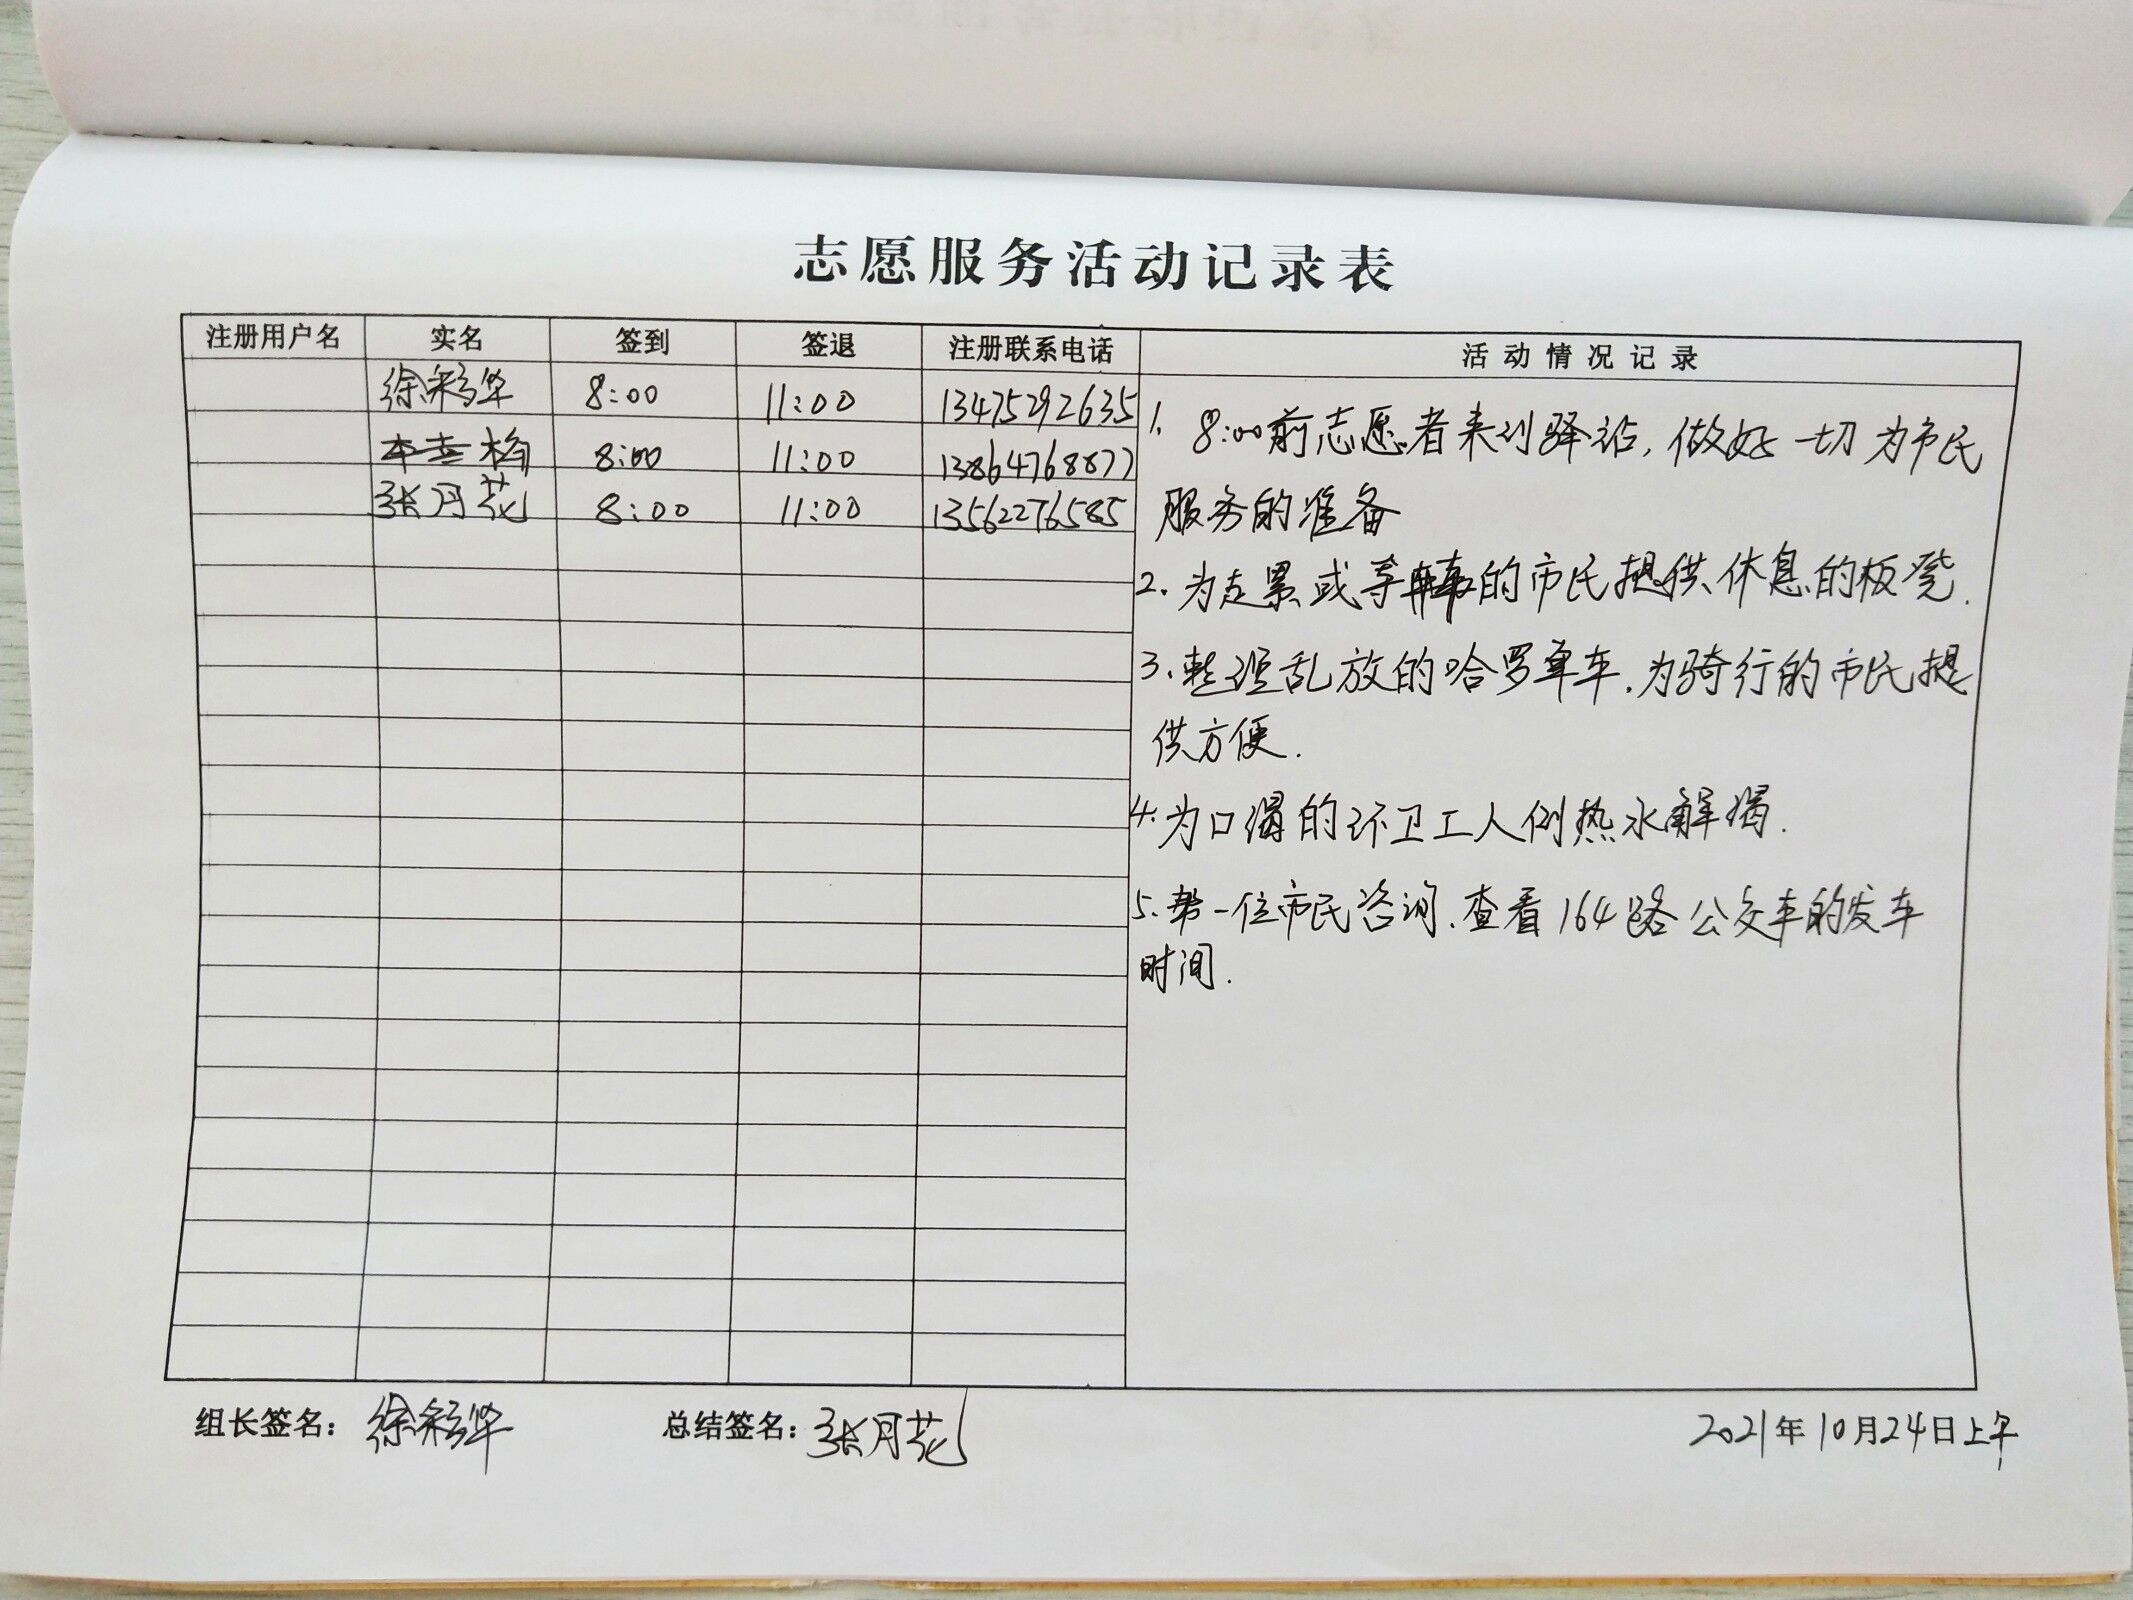 志愿服务活动记录表
注册用户名 实名 签到 签退 注册联系电话 活动情况记录
徐彩华 8:00 11:00 13475292635
李吉梅 8:00 11:00 13864768877
张月花 8:00 11:00 13562276585
1. 8:00前志愿者来到驿站,做好一切为市民
服务的准备
2. 为走累或等车的市民提供休息的板凳.
3. 整理乱放的哈罗单车.为骑行的市民提
供方便.
4. 为口渴的环卫工人倒热水解渴.
5. 帮一位市民咨询.查看164路公交车的发车
时间.
组长签名: 徐彩华 总结签名: 张月花 2021年10月24日上午